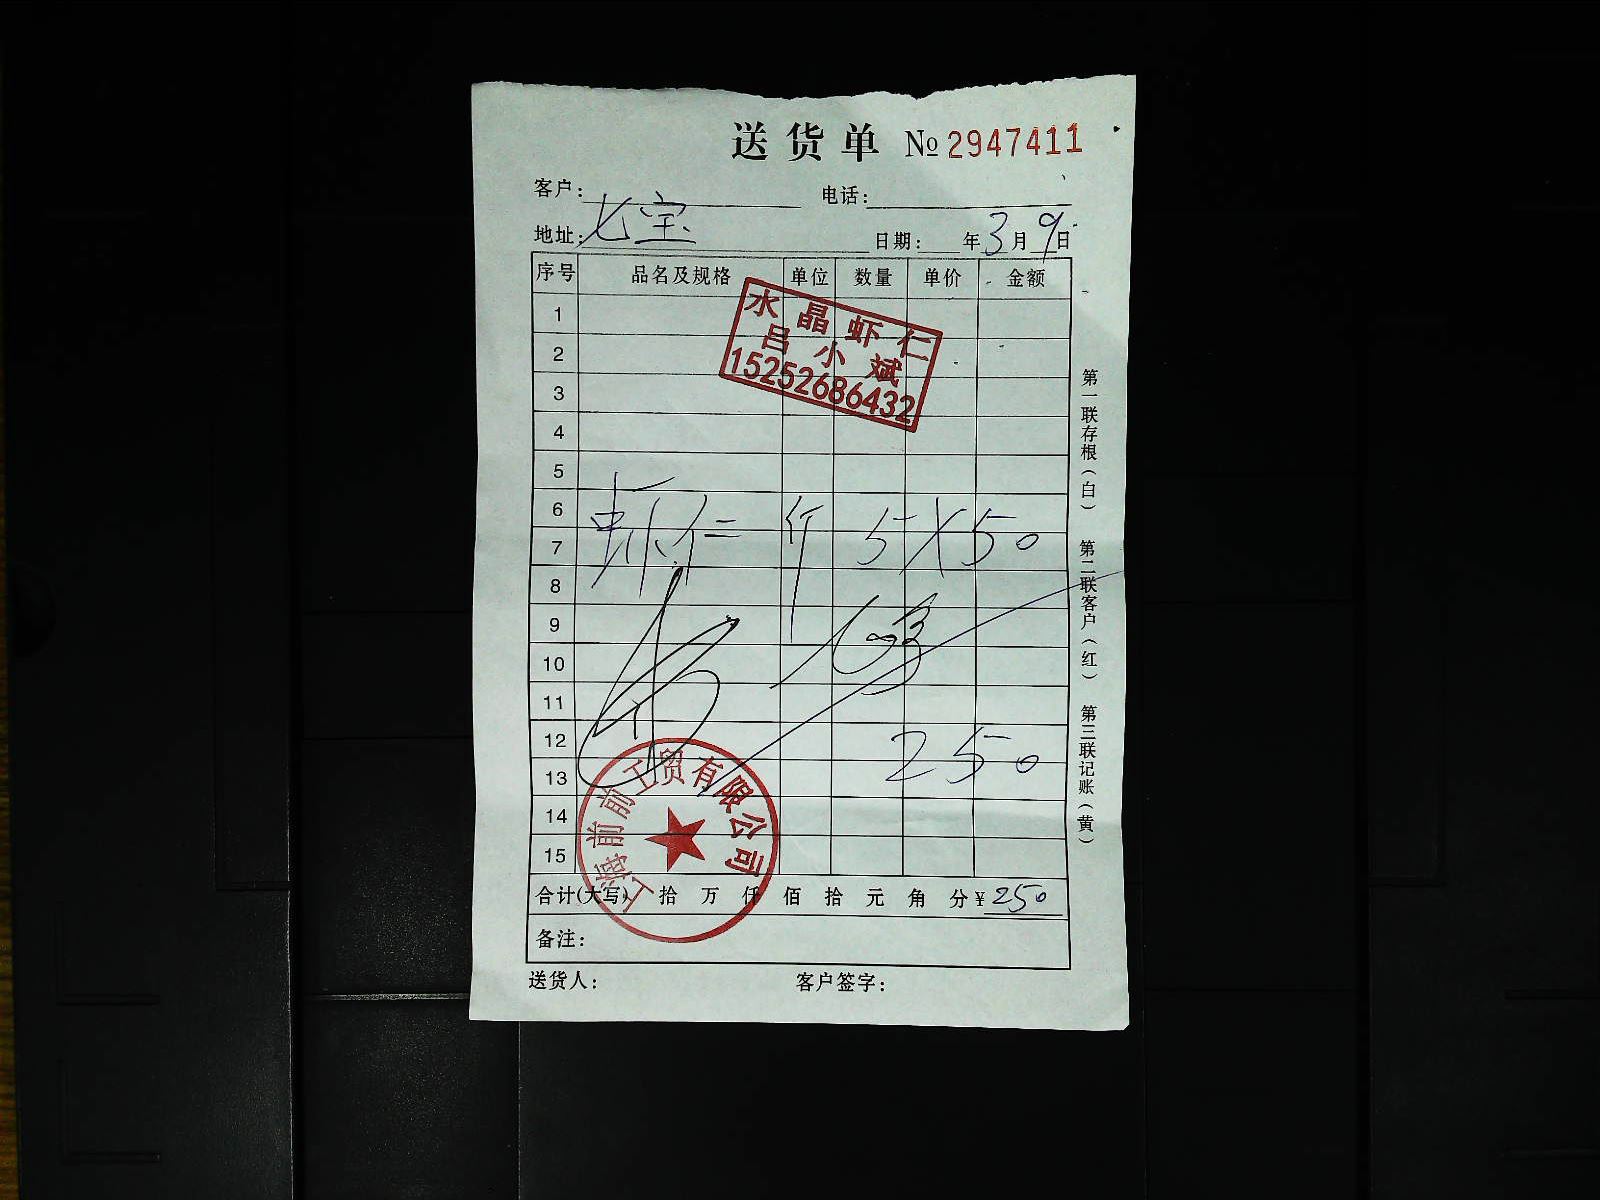 送货单 № 2947411
客户: 电话:
地址: 七宝 日期: 年3月9日
序号 品名及规格 单位 数量 单价 金额
水晶虾仁
吕小斌
15252686432
1
2
3
4
5
6
7
虾仁 斤 5×50
8
9
10
11
12
250
13
14
15
上海前前工贸有限公司
合计(大写) 拾 万 仟 佰 拾 元 角 分 ¥250
备注:
送货人: 客户签字:
第一联存根(白) 第二联客户(红) 第三联记账(黄)